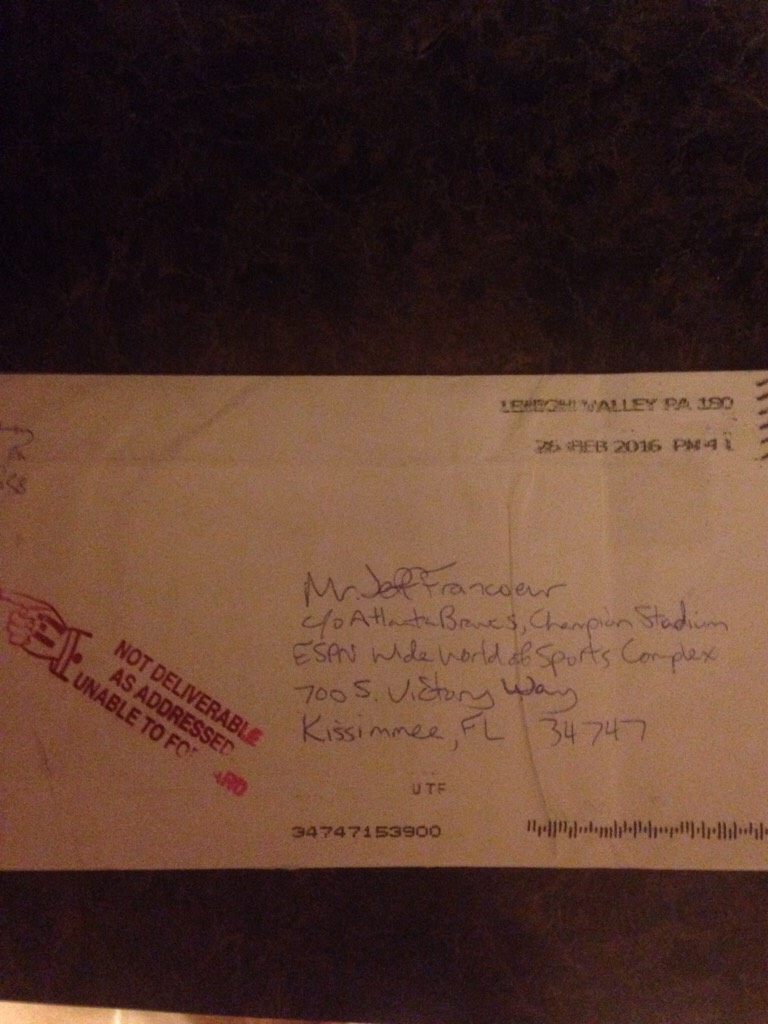 LEHIGH VALLEY PA 180
26 FEB 2016 PM 4 L
Mr. Jeff Francoeur
c/o Atlanta Braves, Champion Stadium
ESPN Wide World of Sports Complex
700 S. Victory Way
Kissimmee, FL 34747
NOT DELIVERABLE
AS ADDRESSED
UNABLE TO FO ARD
UTF
34747153900